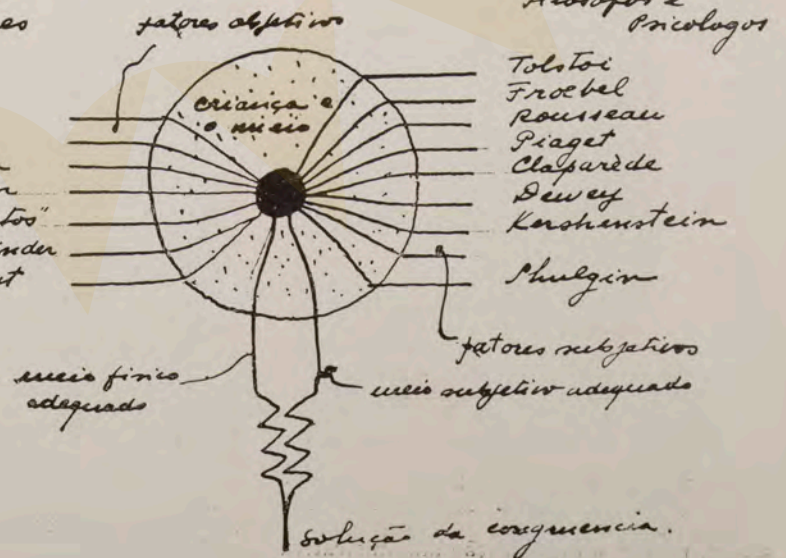 fatores objetivos
Psicologos
criança e
o meio
Tolstoi
Froebel
Rousseau
Piaget
Claparède
Dewey
Kershenstein
Shulgin
fatores subjetivos
meio fisico
adequado
meio subjetivo adequado
solução da congruencia.